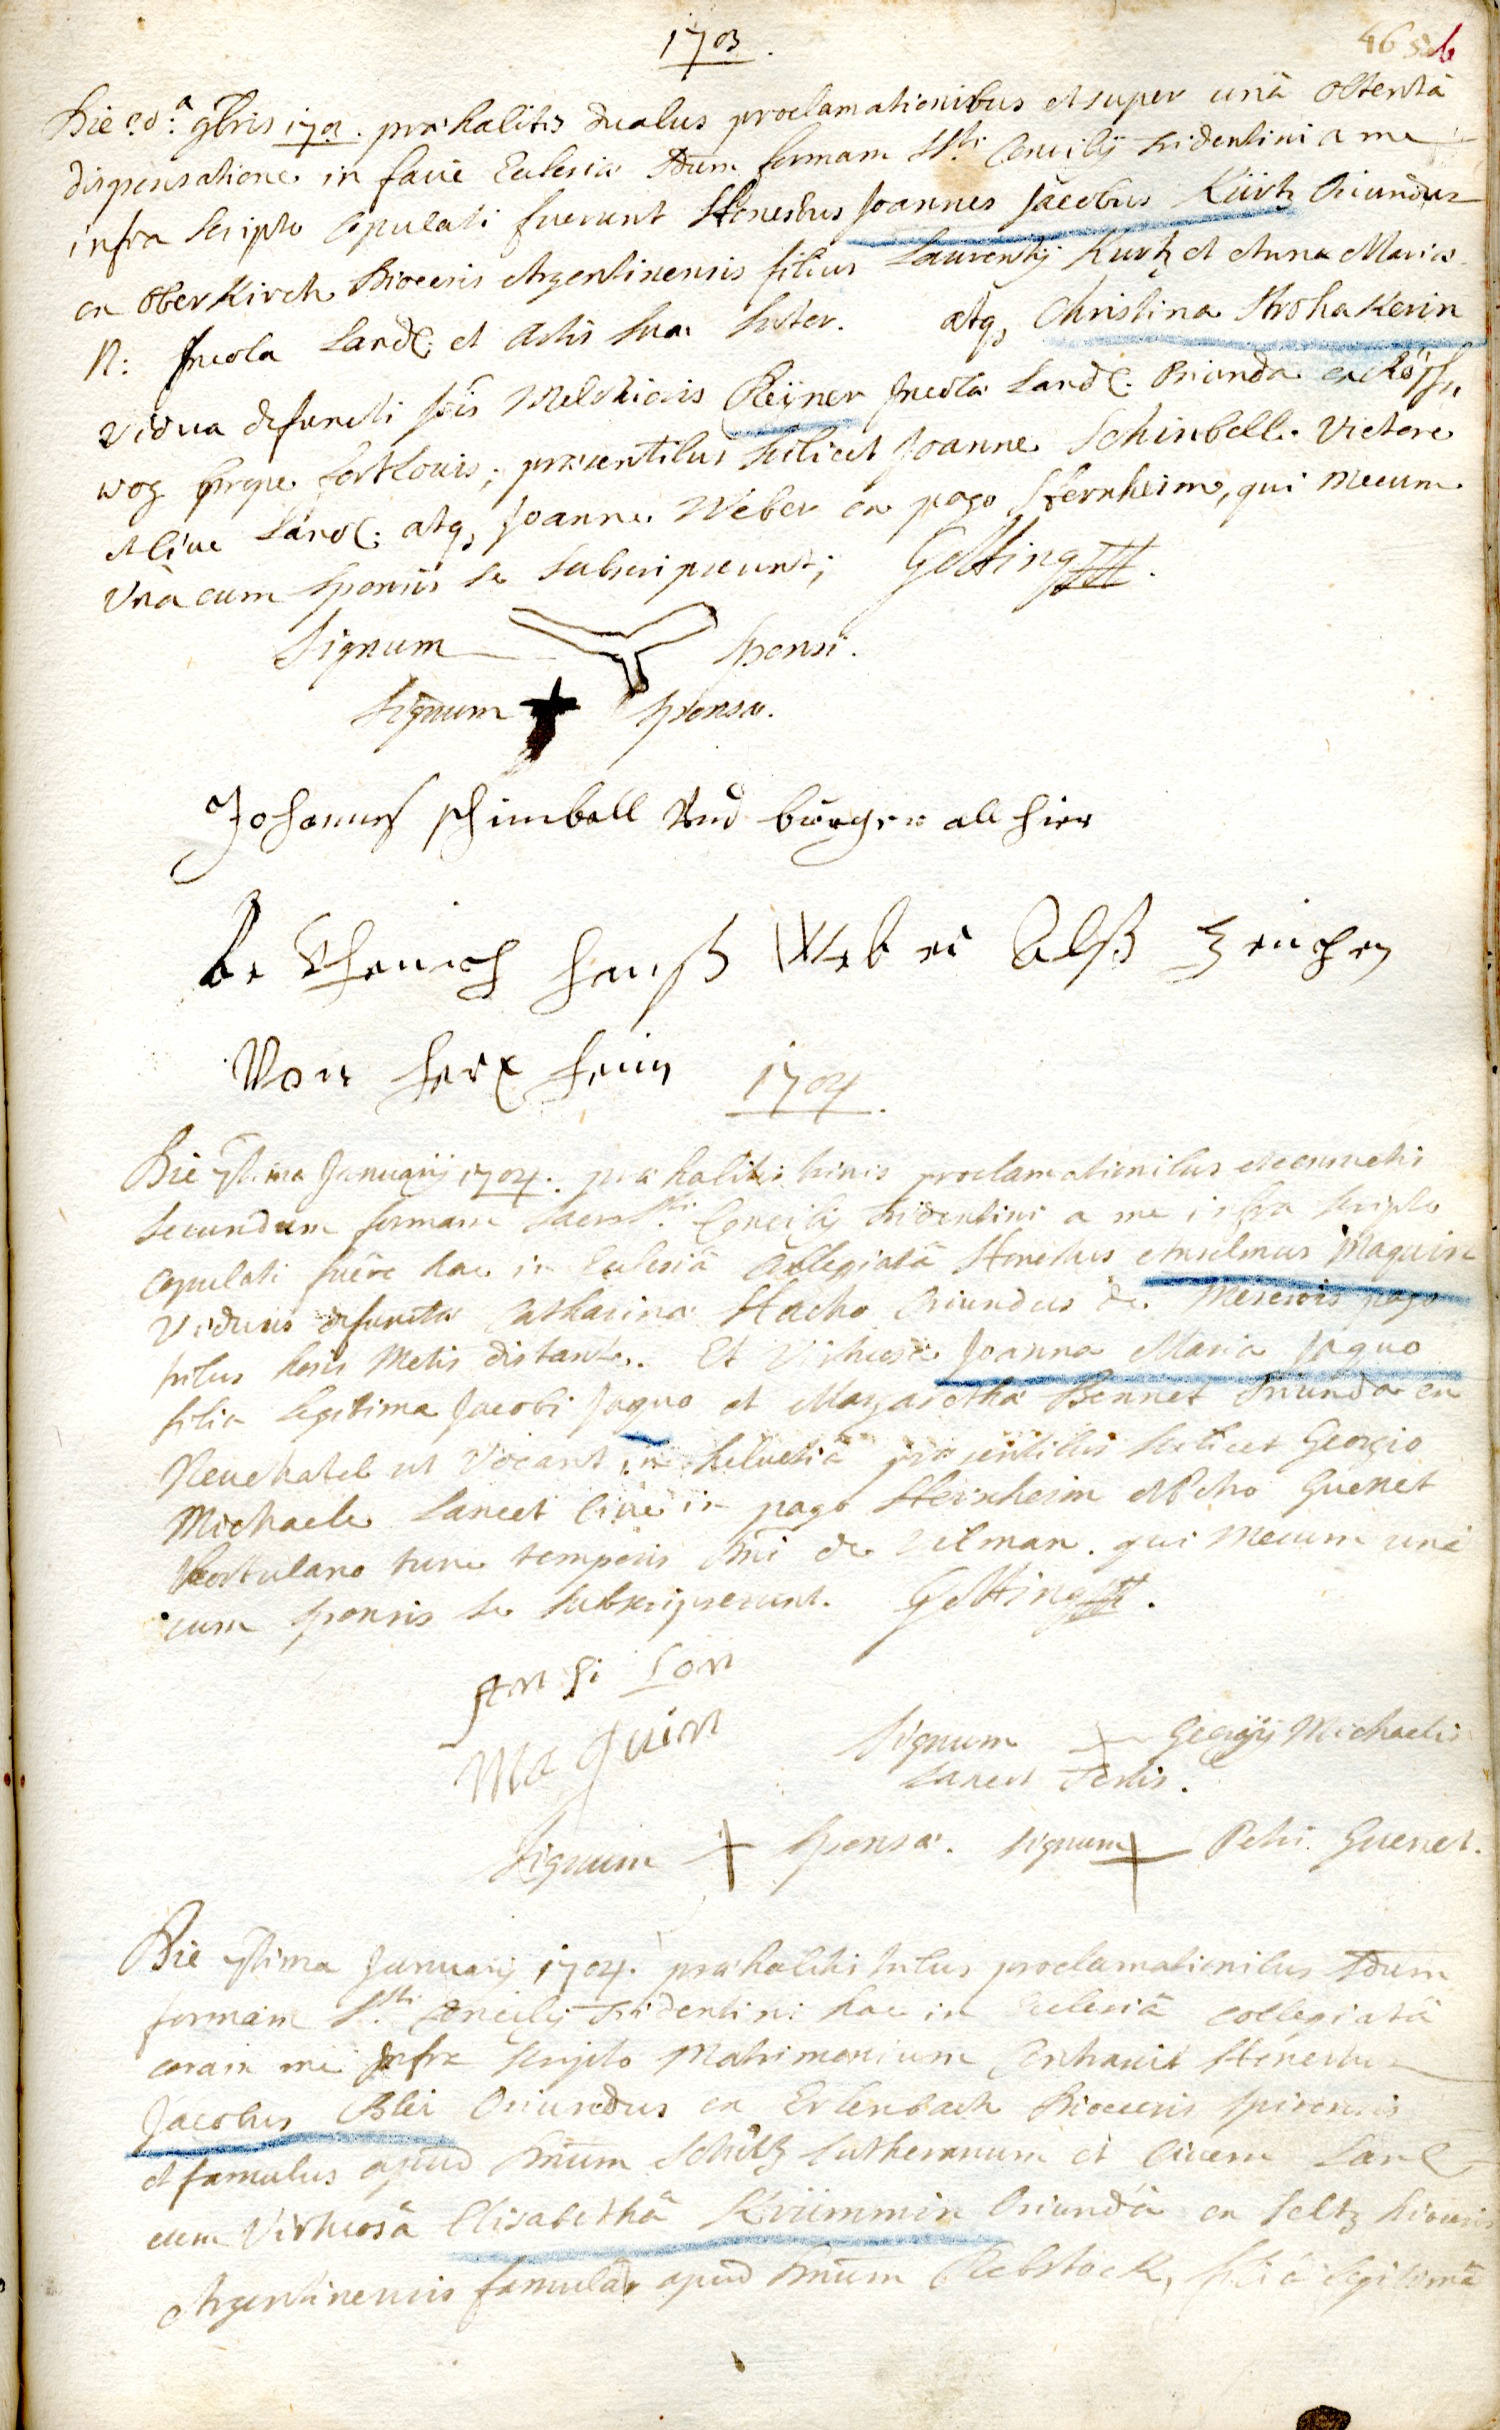 1703.
465 b
Die 20.a 9bris 1703. præhabitis duabus proclamationibus et super unâ obtentâ
dispensatione in facie Ecclesiæ Sdum formam Ssti Concilij Tridentini a me
infra scripto copulati fuerunt Honestus Joannes Jacobus Kürtz Oriundus
ex Oberkirch Diocesis Argentinensis filius Laurentij Kurtz et Anna Maria
N: Incola Land: et Artis suæ Sutor. atq, Christina Strohakerin
Vidua defuncti Jois Melchioris Reijner Incolæ Land: Orionda ex Rösch
wog prope fortLouis; præsentibus scilicet Joanne Schinbell Victore
et Cive Land: atq, Joanne Weber ex pago Herxheim, qui mecum
Unà cum sponsis se subscripserunt; Gotting
Signum sponsi.
Signum sponsæ.
Johannes schimbell Und burger all hier
be Hanß Weber Alß Zeichen
Von herx heim
1704.
Die 7tima Januarij 1704. præhabitis trinis proclamationibus et
secundum formam Sacrosti Concilij Tridentini a me infra scripto
copulati fuêre hac in Ecclesiâ Collegiatâ Honestus Anselmus Maguin
Viduus defunctæ Catharinæ Hacho Oriundus de pago
tribus horis Metis distante. Et Virtuosa Joanna Maria Jaquo
filia legitima Jacobi Jaquo et Margarethæ Bonnet Oriunda ex
Neuchatel ut Vocant in helvetiâ præsentibus scilicet Georgio
Michaele Lancet Cive in pago Herxheim et Petro Guenet
Hortulano tunc temporis Dni de Vilman. qui mecum unà
cum sponsis se subscripserunt. Gotting
An si Lon
Maguin
Signum Georgij Michaelis
Lancet Testis.
Signum sponsæ. Signum Petri Guenet.
Die 7tima Januarij 1704. præhabitis tribus proclamationibus Sdum
formam Ssti Concilij Tridentini hac in Ecclesiâ collegiatâ
coram me Infra scripto Matrimonium contraxit Honestus
Jacobus Blei Oriundus ex Erlenbach Diocesis spirensis
et famulus apud Dnum Schültz Lutheranum et Civem Land
cum Virtuosâ Elisabethâ Krümmin Oriundâ ex Seltz diocesis
Argentinensis famulâ apud Dnum Rebstock, filiâ legitimâ